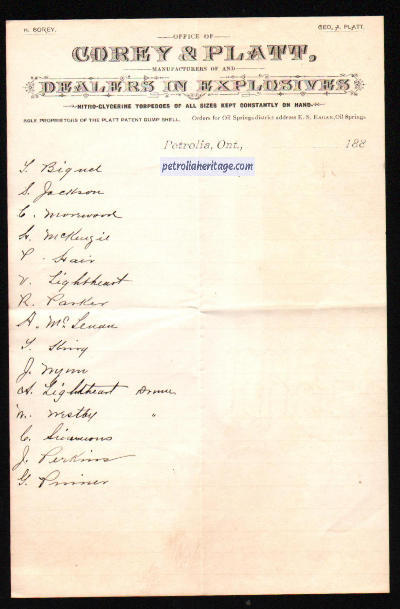 H. COREY. GEO. A. PLATT.
OFFICE OF
COREY & PLATT,
MANUFACTURERS OF AND
DEALERS IN EXPLOSIVES
NITRO-GLYCERINE TORPEDOES OF ALL SIZES KEPT CONSTANTLY ON HAND.
SOLE PROPRIETORS OF THE PLATT PATENT BUMP SHELL. Orders for Oil Springs district address E. S. EAGAN, Oil Springs.
Petrolia, Ont., 188
petroliaheritage.com
S. Jackson
C. Morewood
H. McKenzie
Hair
V. Lightheart
R. Parker
A. Mc
T. King
J. Wynn
A. Lightheart
W. Westby "
C. Simmons
J. Perkins
G. Primer